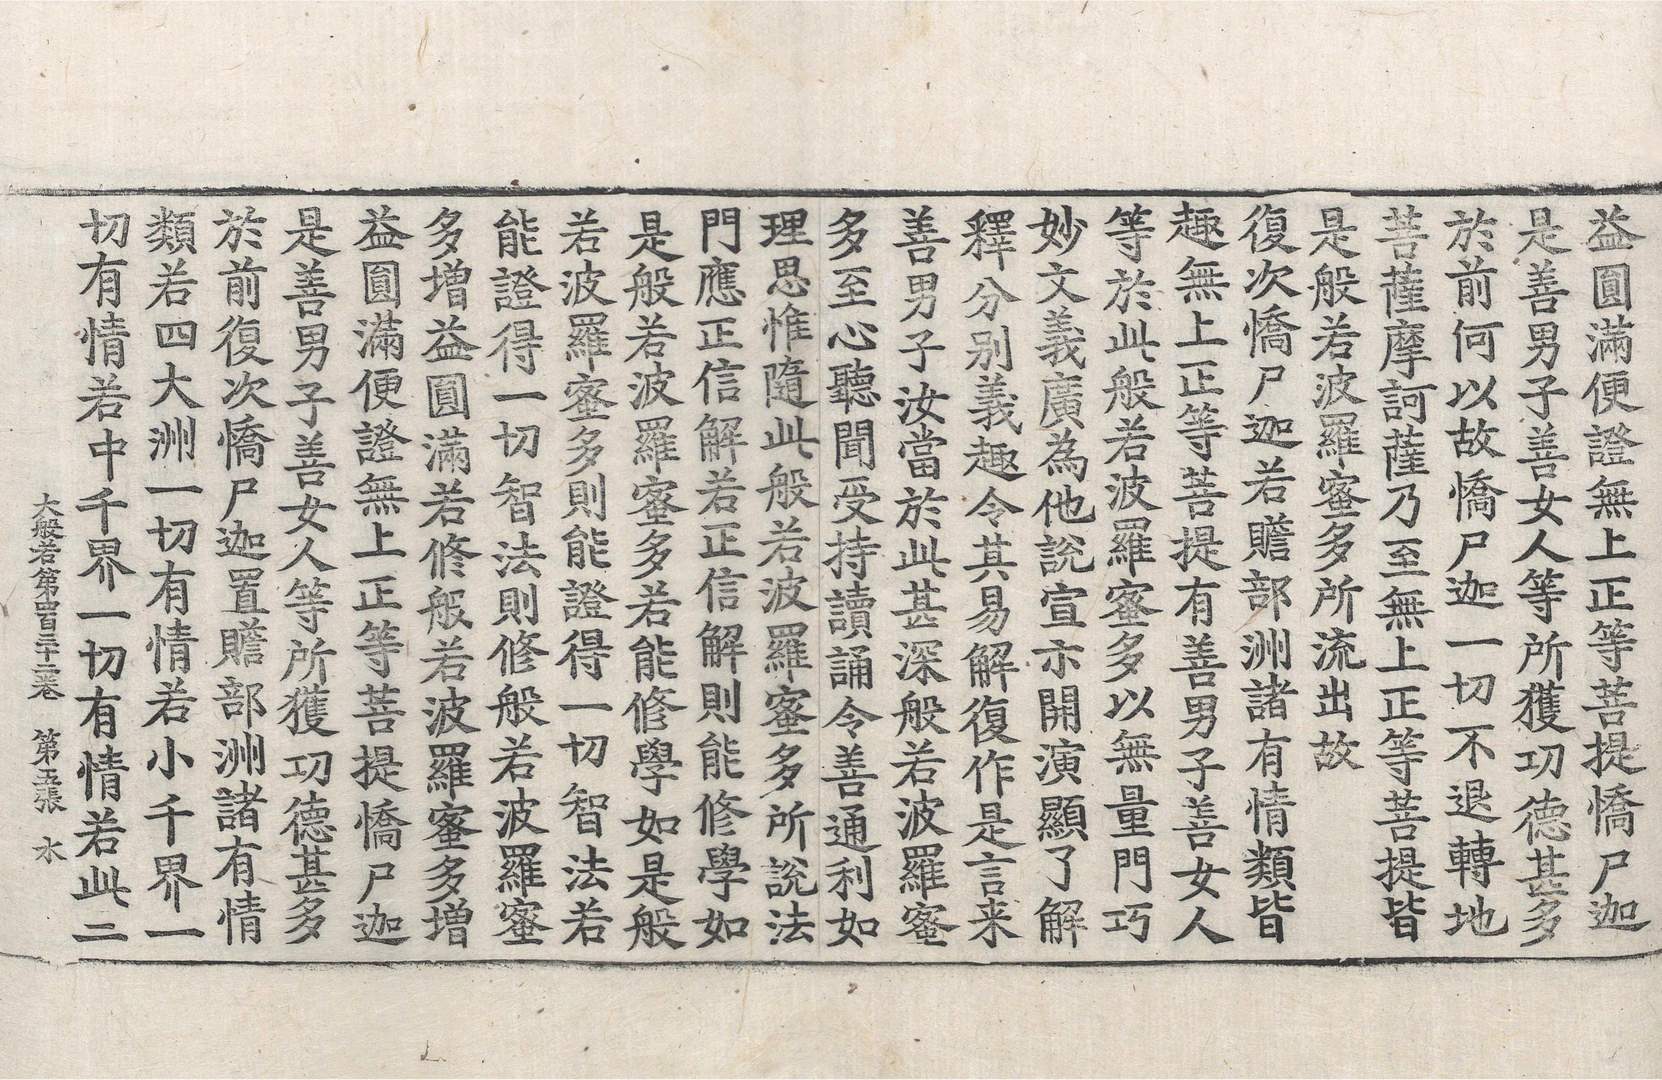 益圓滿便證無上正等菩提憍尸迦
是善男子善女人等所獲功德甚多
於前何以故憍尸迦一切不退轉地
菩薩摩訶薩乃至無上正等菩提皆
是般若波羅蜜多所流出故
復次憍尸迦若贍部洲諸有情類皆
趣無上正等菩提有善男子善女人
等於此般若波羅蜜多以無量門巧
妙文義廣為他說宣示開演顯了解
釋分別義趣令其易解復作是言来
善男子汝當於此甚深般若波羅蜜
多至心聽聞受持讀誦令善通利如
理思惟隨此般若波羅蜜多所說法
門應正信解若正信解則能修學如
是般若波羅蜜多若能修學如是般
若波羅蜜多則能證得一切智法若
能證得一切智法則修般若波羅蜜
多增益圓滿若修般若波羅蜜多增
益圓滿便證無上正等菩提憍尸迦
是善男子善女人等所獲功德甚多
於前復次憍尸迦置贍部洲諸有情
類若四大洲一切有情若小千界一
切有情若中千界一切有情若此三
大般若第四百三十二卷　第五張　水